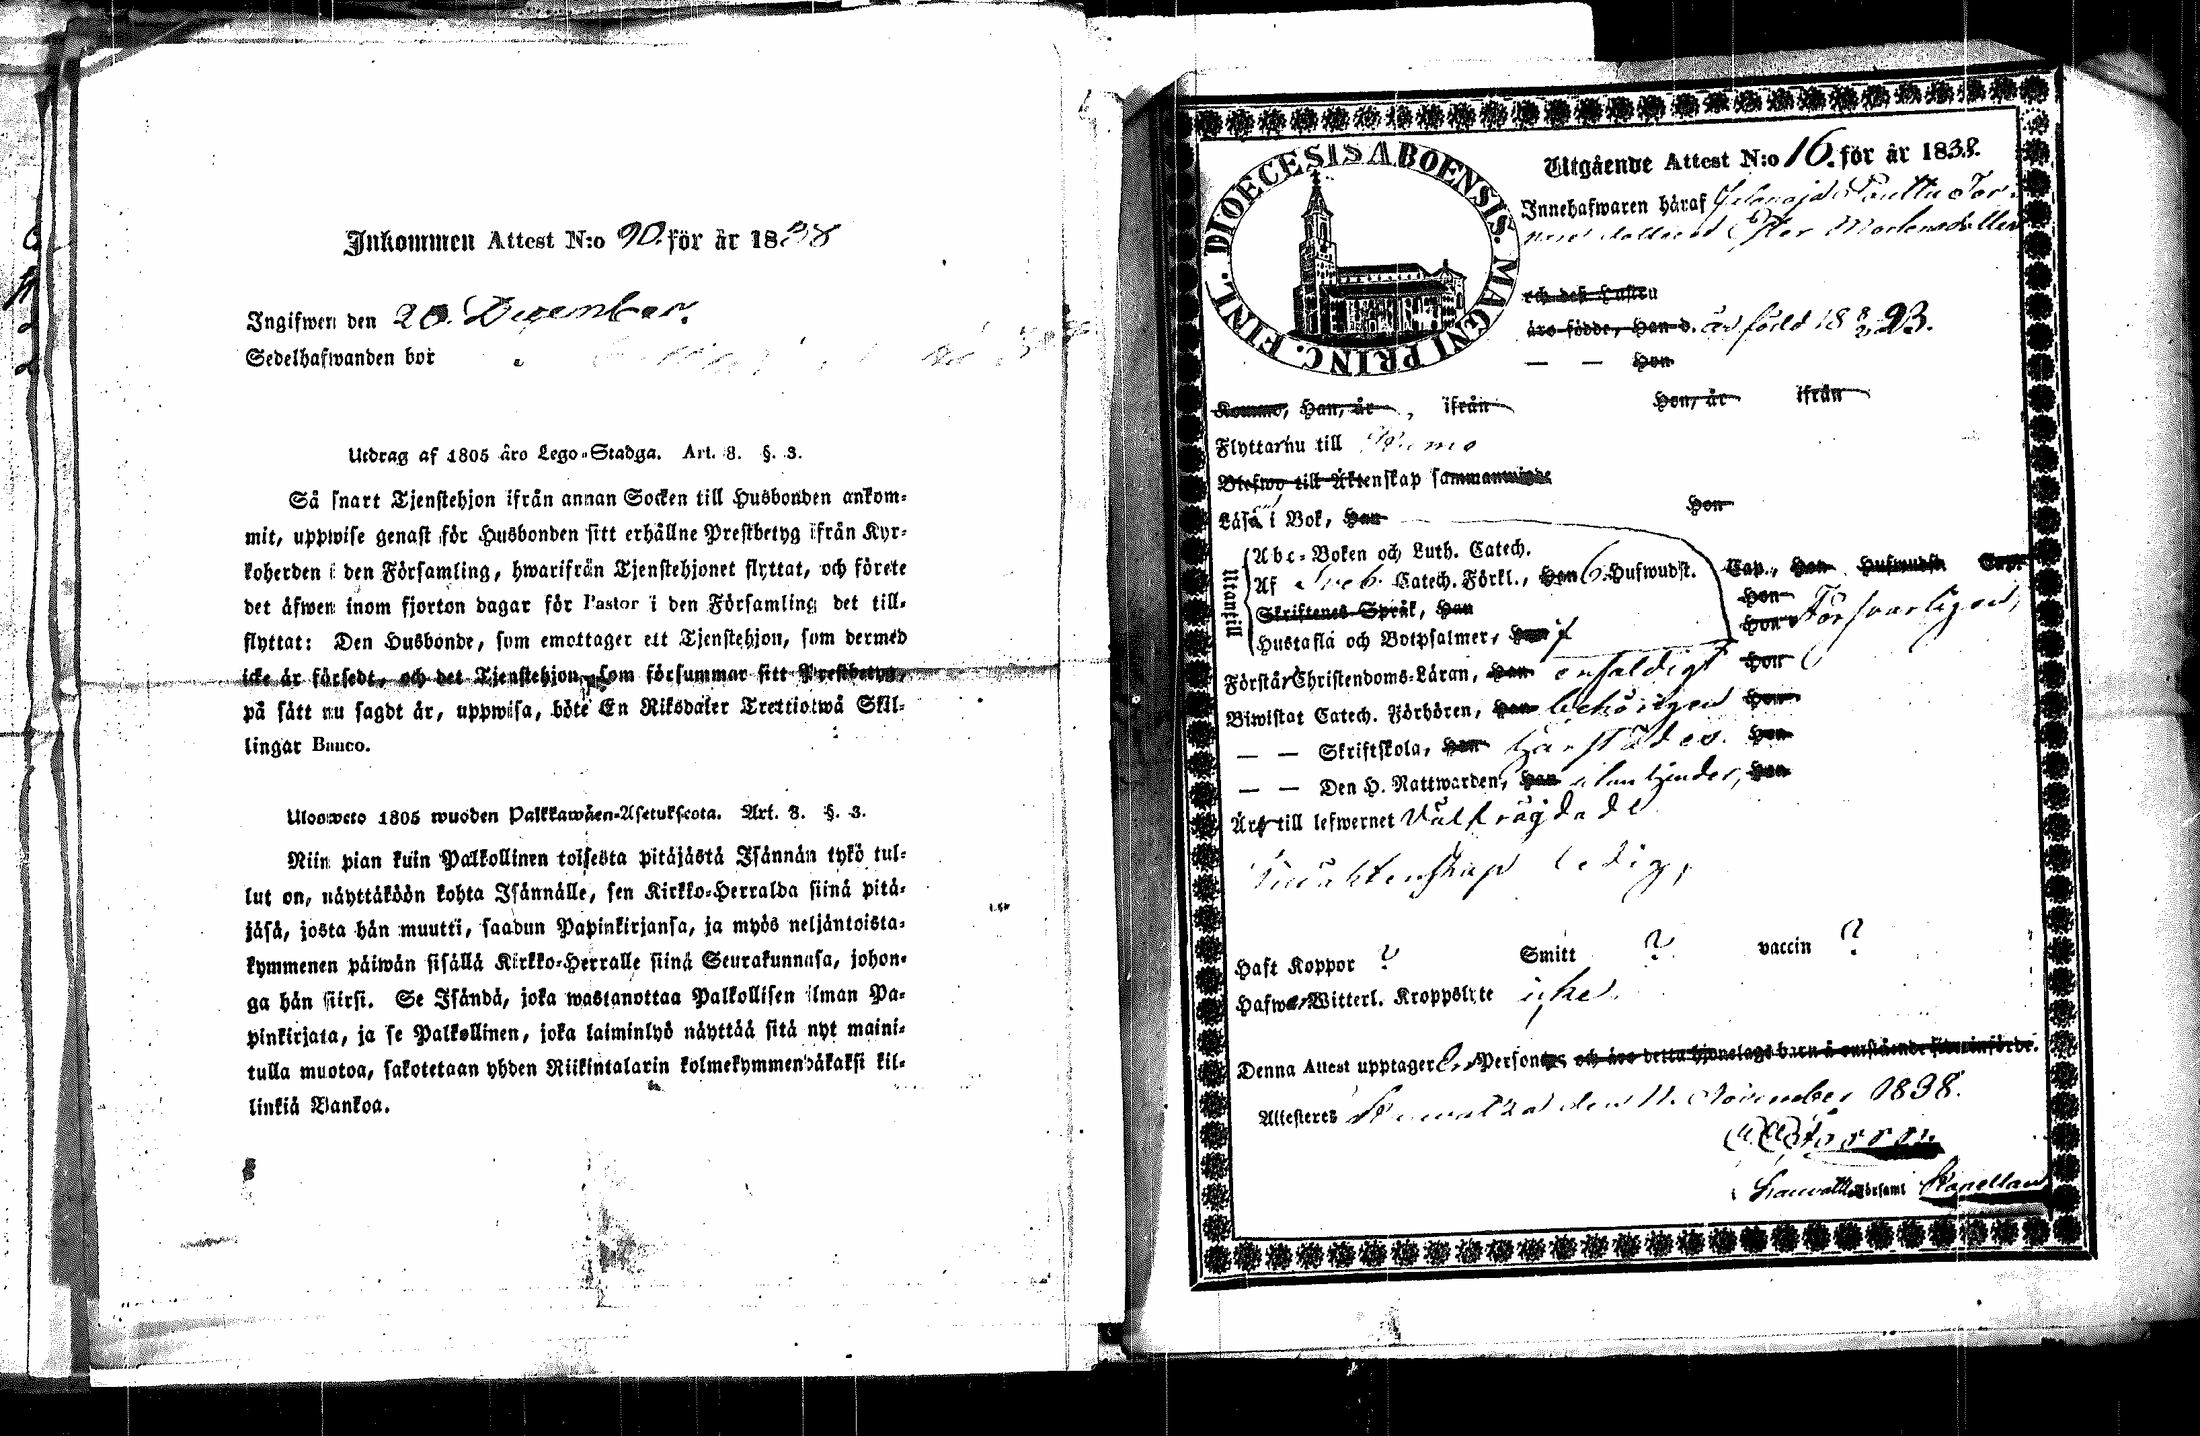 Inkommen Attest N:o 90. för år 1838
Ingifwen den 20. December.
Sedelhafwanden bor
Utdrag af 1805 åro Lego-Stadga. Art. 8. §. 3.
Så snart Tjenstehjon ifrån annan Socken till Husbonden ankom-
mit, uppwise genast för Husbonden sitt erhållne Prestbetyg ifrån Kyr-
koherden i den Församling, hwarifrån Tjenstehjonet flyttat, och förete
det äfwen inom fjorton dagar för Pastor i den Församling det till-
flyttat: Den Husbonde, som emottager ett Tjenstehjon, som dermed
icke är försedt, och det Tjenstehjon, som försummar sitt Prestbetyg,
på sätt nu sagdt är, uppwisa, böte En Riksdaler Trettiotwå Skil-
lingar Banco.
Ulosweto 1805 wuoden Palkkawäen-Asetuksesta. Art. 8. §. 3.
Niin pian kuin Palkollinen toisesta pitäjästä Isännän tykö tul-
lut on, näyttäköön kohta Isännälle, sen Kirkko-Herralda siinä pitä-
jäsä, josta hän muutti, saadun Papinkirjansa, ja myös neljäntoista-
kymmenen päiwän sisällä Kirkko-Herralle siinä Seurakunnasa, johon-
ga hän siirsi. Se Isändä, joka wastanottaa Palkollisen ilman Pa-
pinkirjata, ja se Palkollinen, joka laiminlyö näyttää sitä nyt maini-
tulla muotoa, sakotetaan yhden Riikintalarin kolmekymmendäkaksi kil-
linkiä Bankoa.
DIOECESIS ABOENSIS. MAGNI PRINC. FINL.
Utgående Attest N:o 16. för år 1838.
Innehafwaren häraf
Ester
och dess Hustru
äro födde, Han d. är född 18 8/2 23.
— — Hon
Kommo, Han, år , ifrån Hon, år ifrån
Flyttar nu till
Blefwo till Äktenskap sammanwigde
Läsa i Bok, Han Hon
Utantill
Abc-Boken och Luth. Catech.
Af Sveb. Catech. Förkl., Han 6. Hufwudst. Cap., Hon Hufwudst. Cap.
Skriftenes Språk, Han Hon
Hustafla och Botpsalmer, Han Hon Försvarligen,
Förstår Christendoms-Läran, Han enfaldigt Hon
Biwistat Catech. Förhören, Han behörigen Hon
— — Skriftskola, Han härstädes. Hon
— — Den H. Nattwarden, Han Hon
Är till lefwernet Välfrägdade
ledig,
Haft Koppor ? Smitt ? vaccin ?
Hafwer Witterl. Kroppslyte icke.
Denna Attest upptager En Person och äro detta hjonelags barn å omstående sida införde.
Attesteres den 11. November 1838.
Församl Kapellan